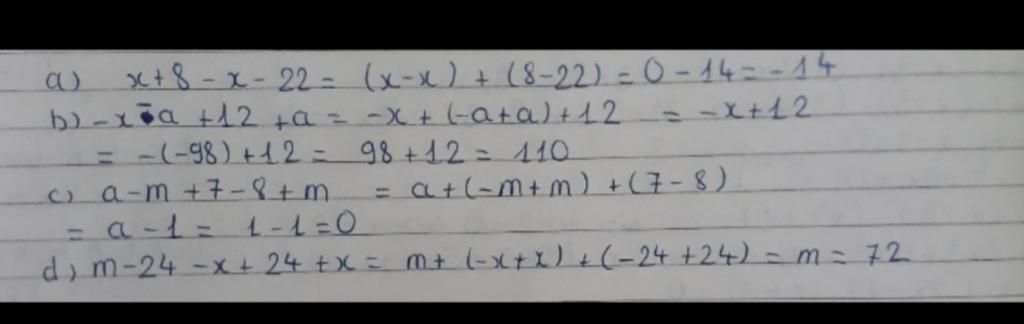 a) x+8-x-22 = (x-x) + (8-22) = 0-14 = -14
b) -x-a +12 +a = -x + (-a+a) +12 = -x+12
= -(-98) +12 = 98+12 = 110
c) a-m+7-8+m = a+(-m+m) +(7-8)
= a-1 = 1-1=0
d) m-24-x+24+x = m+ (-x+x) +(-24+24) = m = 72